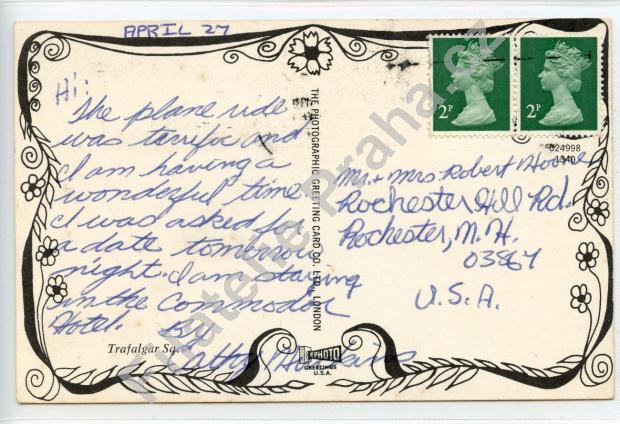 APRIL 27
Hi:
The plane ride
was terrific and
I am having a
wonderful time
I was asked for
a date tomorrow
night. I am staying
in the Commodor
Hotel. By
Cathy
Trafalgar Sq.
THE PHOTOGRAPHIC GREETING CARD CO. LTD., LONDON
PHOTO
GREETINGS
U.S.A.
2P
2P
024998
1340
Mr. + Mrs Robert
Rochester Hill Rd.
Rochester, N. H.
03867
U.S.A.
Filatelie Praha.cz